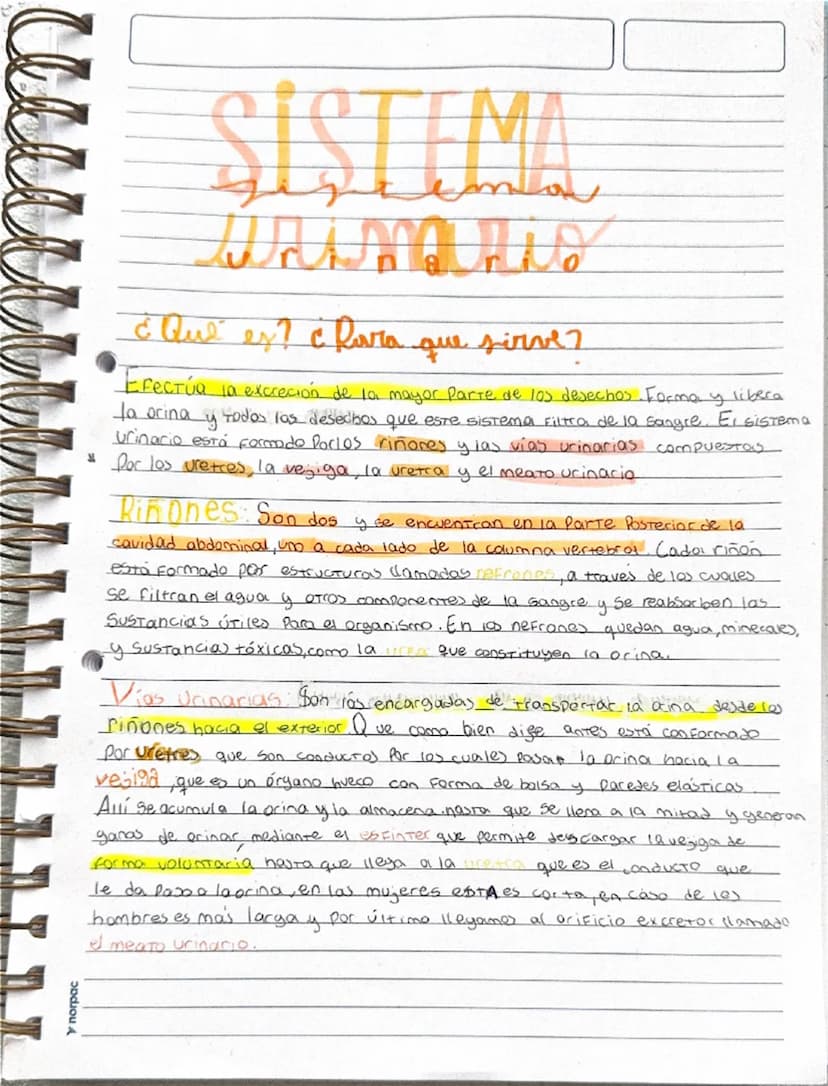 SiSTEMA
sistema
urinario
urinario
¿Qué es? ¿Para que sirve?
Efectúa la excreción de la mayor parte de los desechos. Forma y libera
la orina y todos los desechos que este sistema filtra de la sangre. El sistema
urinario está formado por los riñones y las vías urinarias compuestas
Por los uretres, la vejiga, la uretra y el meato urinario
Riñones: Son dos y se encuentran en la parte posterior de la
cavidad abdominal, uno a cada lado de la columna vertebral. Cada riñón
está formado por estructuras llamadas nefrones, a través de los cuales
se filtran el agua y otros componentes de la sangre y se reabsorben las
sustancias útiles para el organismo. En los nefrones quedan agua, minerales,
y sustancias tóxicas, como la urea que constituyen la orina.
Vías urinarias: Son las encargadas de transportar la orina desde los
riñones hacia el exterior. Que como bien dige antes está conformado
por uretres que son conductos por los cuales pasa la orina hacia la
vejiga, que es un órgano hueco con forma de bolsa y paredes elásticas.
Allí se acumula la orina y la almacena hasta que se llena a la mitad y generan
ganas de orinar, mediante el esfinter que permite descargar la vejiga de
forma voluntaria hasta que llega a la uretra que es el conducto que
le da paso a la orina, en las mujeres ESTA es corta, en caso de los
hombres es más larga y por último llegamos al orificio excretor llamado
el meato urinario.
norpac